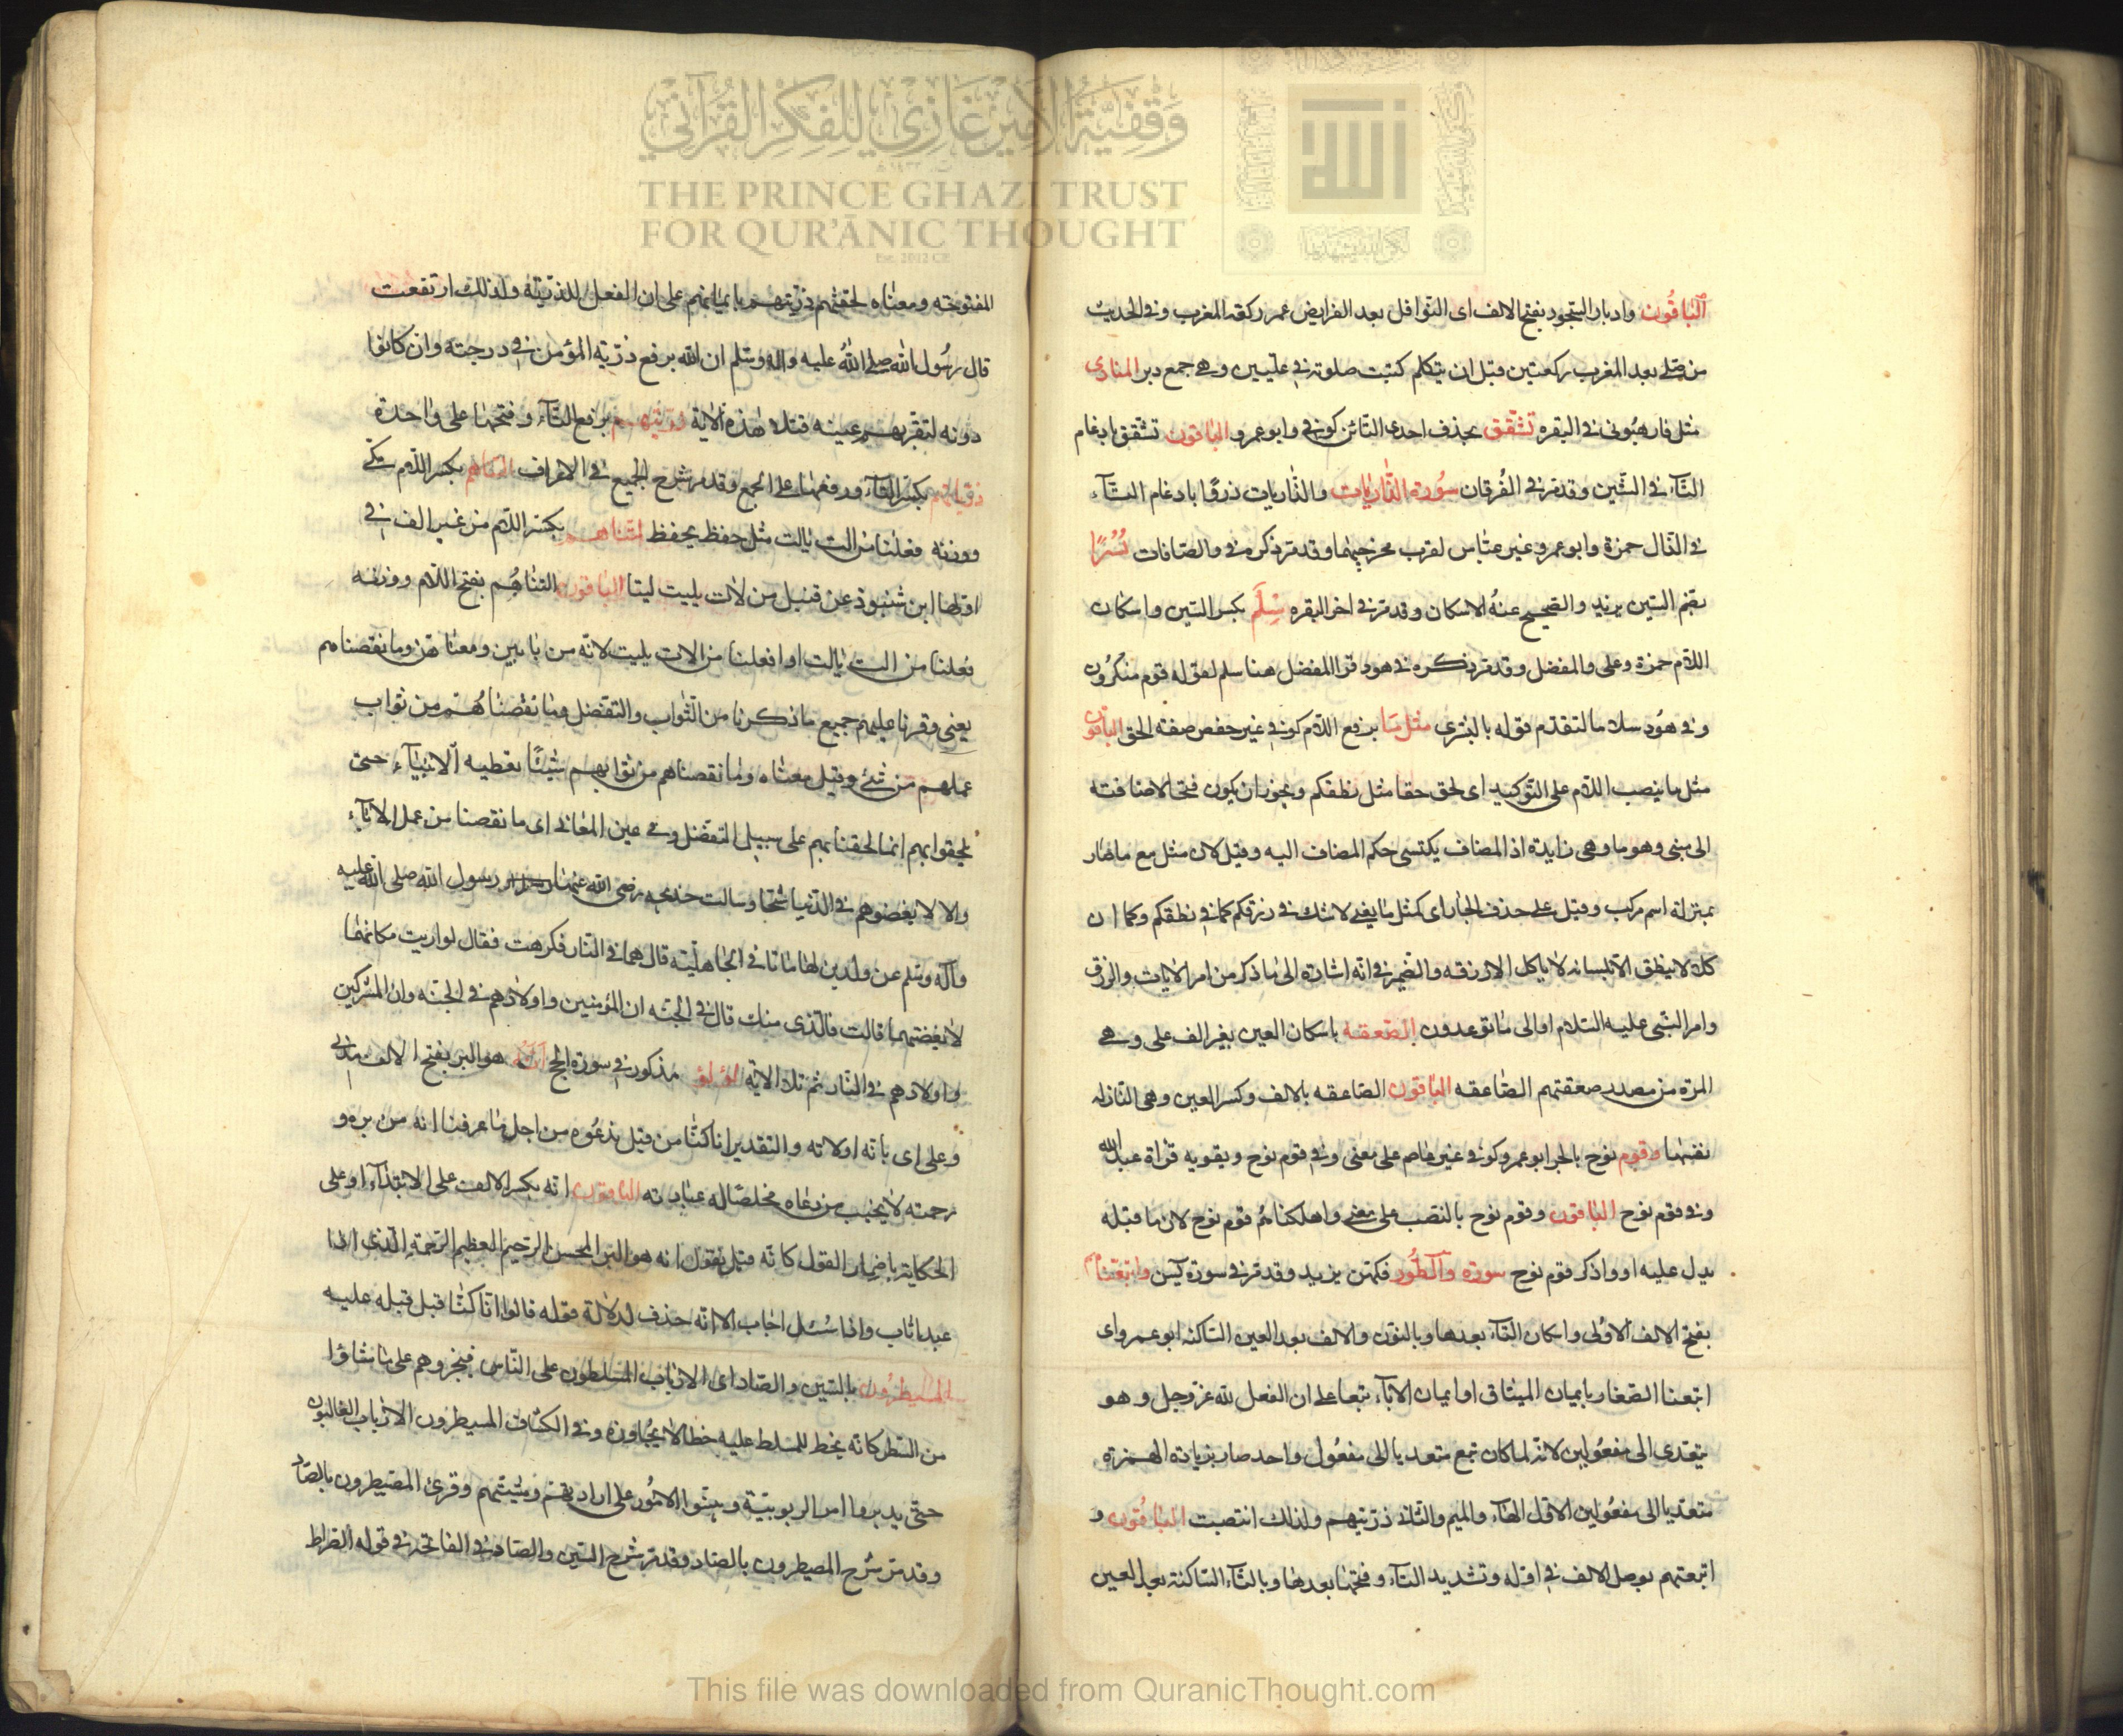 الباقون وادبار السجود بفتح الالف اى النوافل بعد الفرايض عمر ركعة المغرب وفي الحديث
من صلى بعد المغرب ركعتين قبل ان يتكلم كتبت صلوته في عليين وهى جمع دبر المنادى
مثل فارهبوني في البقره تشقق بحذف احدى التائين كوفي وابو عمرو الباقون تشقق بادغام
التاء في الشين وقد مر في الفرقان سورة الذاريات والذاريات ذروا بادغام التاء
في الذال حمزة وابو عمرو غير عباس لقرب مخرجيهما وقد مر ذكره في والصافات يُسُرًا
بضم السين يزيد والصحيح عنه الاسكان وقد مر في اخر البقره سِلْم بكسر السين واسكان
اللام حمزة وعلى والمفضل وقد مر ذكره في هود قرا المفضل هنا سلم لقوله قوم منكرون
وفي هود سلاما لتقدم قوله بالبشرى مثل ما برفع اللام كوفي غير حفص صفة الحق الباقون
مثل ما بنصب اللام على التوكيد اى لحق حقا مثل نطقكم ويجوز ان يكون فتحا لاضافته
الى مبنى وهو ما وهى زايدة اذ المضاف يكتسى حكم المضاف اليه وقيل لان مثل مع ما صار
بمنزلة اسم مركب وقيل على حذف الجار اى كمثل ما يعنى لا شك في رزقكم كما في نطقكم وكما ان
كلا لا ينطق الا بلسانه لا ياكل الا رزقه والضمير في انه اشارة الى ما ذكر من امر الايات والرزق
وامر النبى عليه السلام او الى ما توعدون الصعقه باسكان العين بغير الف على وهى
المرة من مصدر صعقتهم الصاعقه الباقون الصاعقه بالالف وكسر العين وهى النازلة
نفسها وقوم نوح بالجر ابو عمرو كوفي غير عاصم على معنى وفي قوم نوح ويقويه قراة عبد الله
وفي قوم نوح الباقون وقوم نوح بالنصب على معنى واهلكنا قوم نوح لان ما قبله
يدل عليه او واذكر قوم نوح سورة والطور فكهين يزيد وقد مر في سورة يس واتبعناهم
بفتح الالف الاولى واسكان التاء بعدها وبالنون والالف بعد العين الساكنه ابو عمرو اى
اتبعنا الصغار بايمان الميثاق او ايمان الاباء تبعا على ان الفعل لله عز وجل وهو
يتعدى الى مفعولين لانه لما كان تبع متعديا الى مفعول واحد صار بزيادة الهمزة
متعديا الى مفعولين الاول الهاء والميم والثاني ذريتهم ولذلك انتصبت الباقون و
اتبعتهم بوصل الالف في اوله وتشديد التاء وفتحها بعدها وبالتاء الساكنة بعد العين
المفتوحه ومعناه لحقتهم ذريتهم بايمانهم على ان الفعل للذرية ولذلك ارتفعت
قال رسول الله صلى الله عليه واله وسلم ان الله يرفع ذرية المؤمن في درجته وان كانوا
دونه لتقر بهم عينه قبلا هذه الاية ذريتهم برفع التاء وفتحها على واحدة
ذرياتهم بكسر التاء ورفعها على الجمع وقد مر شرح الجميع في الاعراف التناهم بكسر اللام مكى
ووزنه فعلنا من الت يالت مثل حفظ يحفظ لتناهم بكسر اللام من غير الف في
اوله ابن شنبوذ عن قنبل من لات يليت ليتا الباقون التناهم بفتح اللام ووزنه
فعلنا من الت يالت او افعلنا من الات يليت لانه من بابين ومعناهن وما نقصناهم
يعنى وفرنا عليهم جميع ما ذكرنا من الثواب والتفضل وما نقصناهم من ثواب
عملهم من شئ وقيل معناه وما نقصناهم من ثوابهم شيئا نعطيه الابناء حتى
يلحقوا بهم انما الحقناهم على سبيل التفضل وفي عين المعانى اى ما نقصنا من عمل الاباء
والا لابغضوهم في الدنيا شحا وسالت خديجه رضى الله عنها رسول الله صلى الله عليه
وآله وسلم عن ولدين لها ماتا في الجاهلية قال هما في النار فكرهت فقال لو اريت مكانهما
لابغضتهما قالت فالذى منك قال في الجنه ان المؤمنين واولادهم في الجنه وان المشركين
واولادهم في النار ثم تلا الاية لؤلؤ مذكور في سورة الحج انه هو البر بفتح الالف مدنى
وعلى اى بانه او لانه والتقدير انا كنا من قبل ندعوه من اجل ما عرفنا انه من بره و
رحمته لا يخيب من دعاه مخلصا له عبادته الباقون انه بكسر الالف على الابتداء او على
الحكاية باضمار القول كانه قيل نقول انه هو البر المحسن الرحيم العظيم الرحمة الذى اذا
عبد اثاب واذا سئل اجاب الا انه حذف لدلالة قوله قالوا انا كنا قبل قبله عليه
المسيطرون بالسين والصاد اى الارباب المسلطون على الناس فيجبروهم على ما شاؤا
من السطر كانه يخط للمسلط عليه خطا لا يجاوزه وفي الكشاف المسيطرون الارباب الغالبون
حتى يدبروا امر الربوبية ويبنوا الامور على ارادتهم ومشيتهم وقرئ المصيطرون بالصاد
وقد مر شرح المصيطرون بالصاد وقد مر شرح السين والصاد في الفاتحة في قوله الصراط
وقفية الأمير غازي للفكر القرآني
THE PRINCE GHAZI TRUST
FOR QUR'ĀNIC THOUGHT
Est. 2012 CE
This file was downloaded from QuranicThought.com